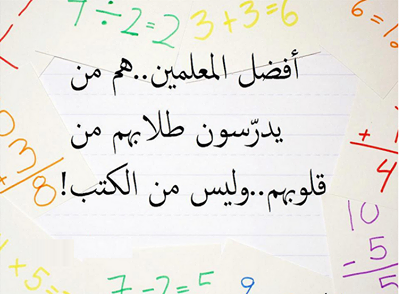 7 ÷ 2 = 2
3+3=6
6=
أفضل المعلمين..هم من
يدرّسون طلابهم من
قلوبهم..وليس من الكتب!
+ 3
8
+ 1
4
10
- 5
5
1+5=
7-2=5